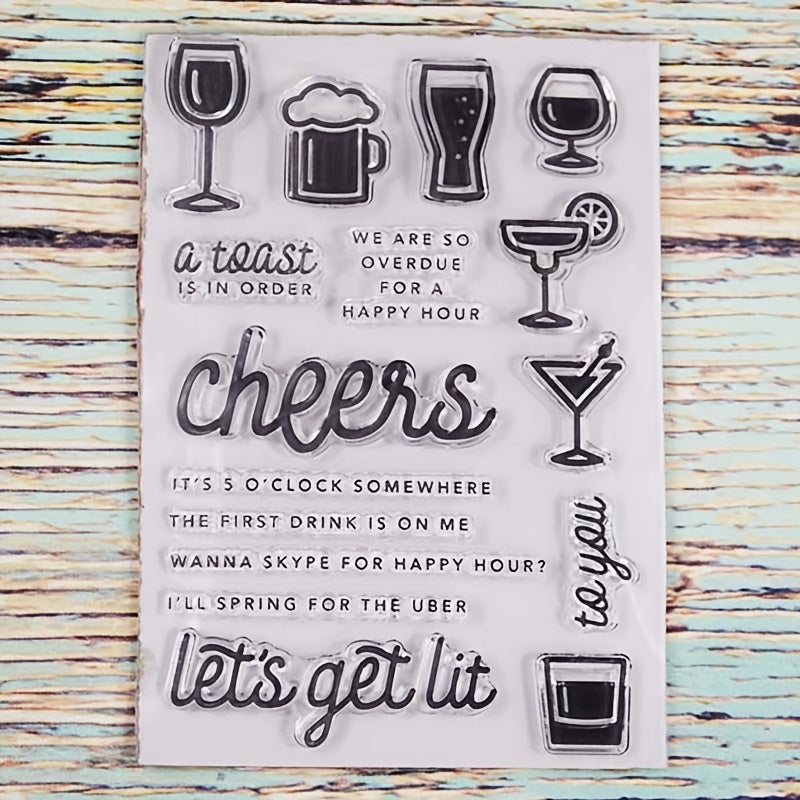 a toast
IS IN ORDER
WE ARE SO
OVERDUE
FOR A
HAPPY HOUR
cheers
IT'S 5 O'CLOCK SOMEWHERE
THE FIRST DRINK IS ON ME
WANNA SKYPE FOR HAPPY HOUR?
I'LL SPRING FOR THE UBER
to you
let's get lit